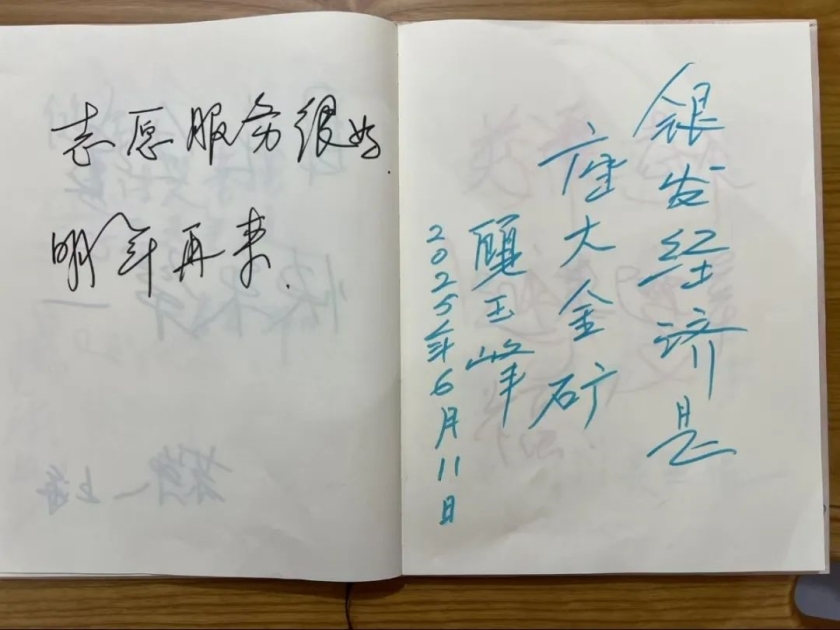 志愿服务很好.
明年再来.
银发经济是
座大金矿
峰
2025年6月11日